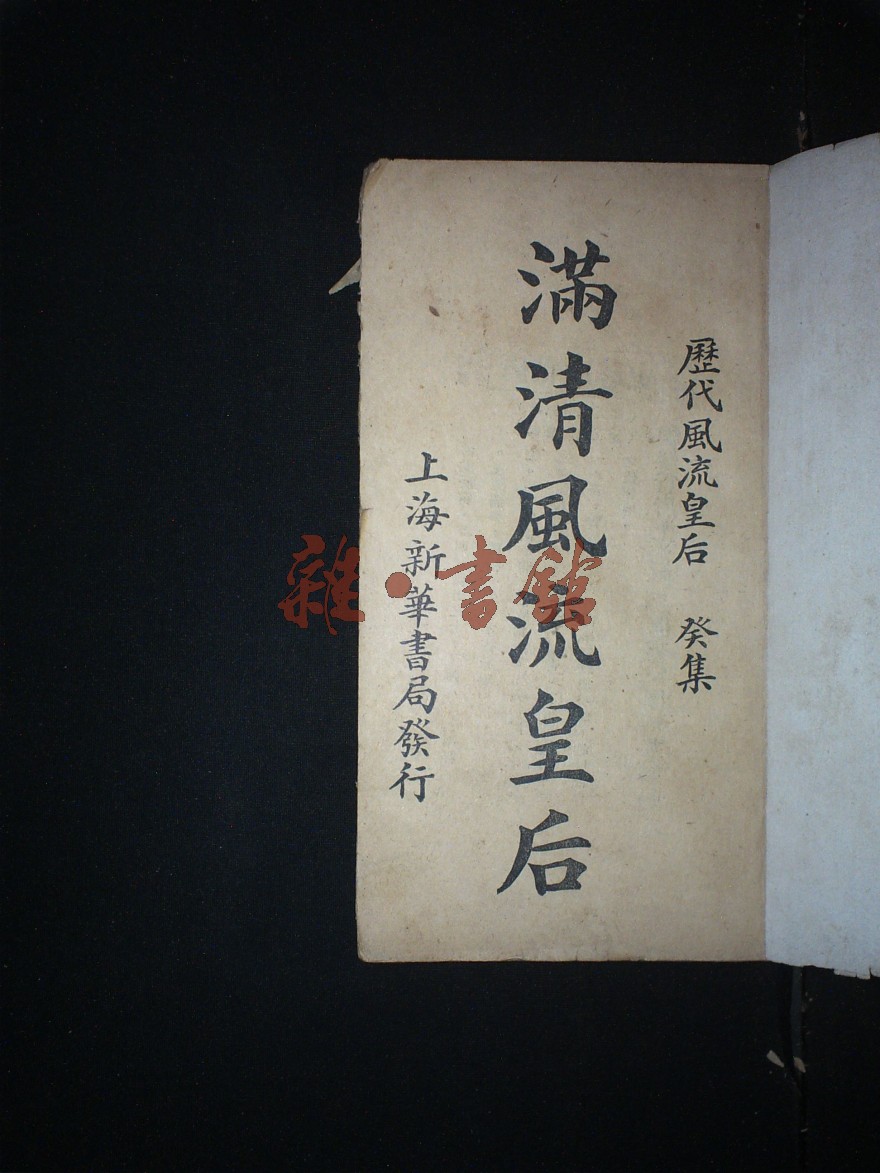 歷代風流皇后 癸集
滿清風流皇后
上海新華書局發行
雜·書館